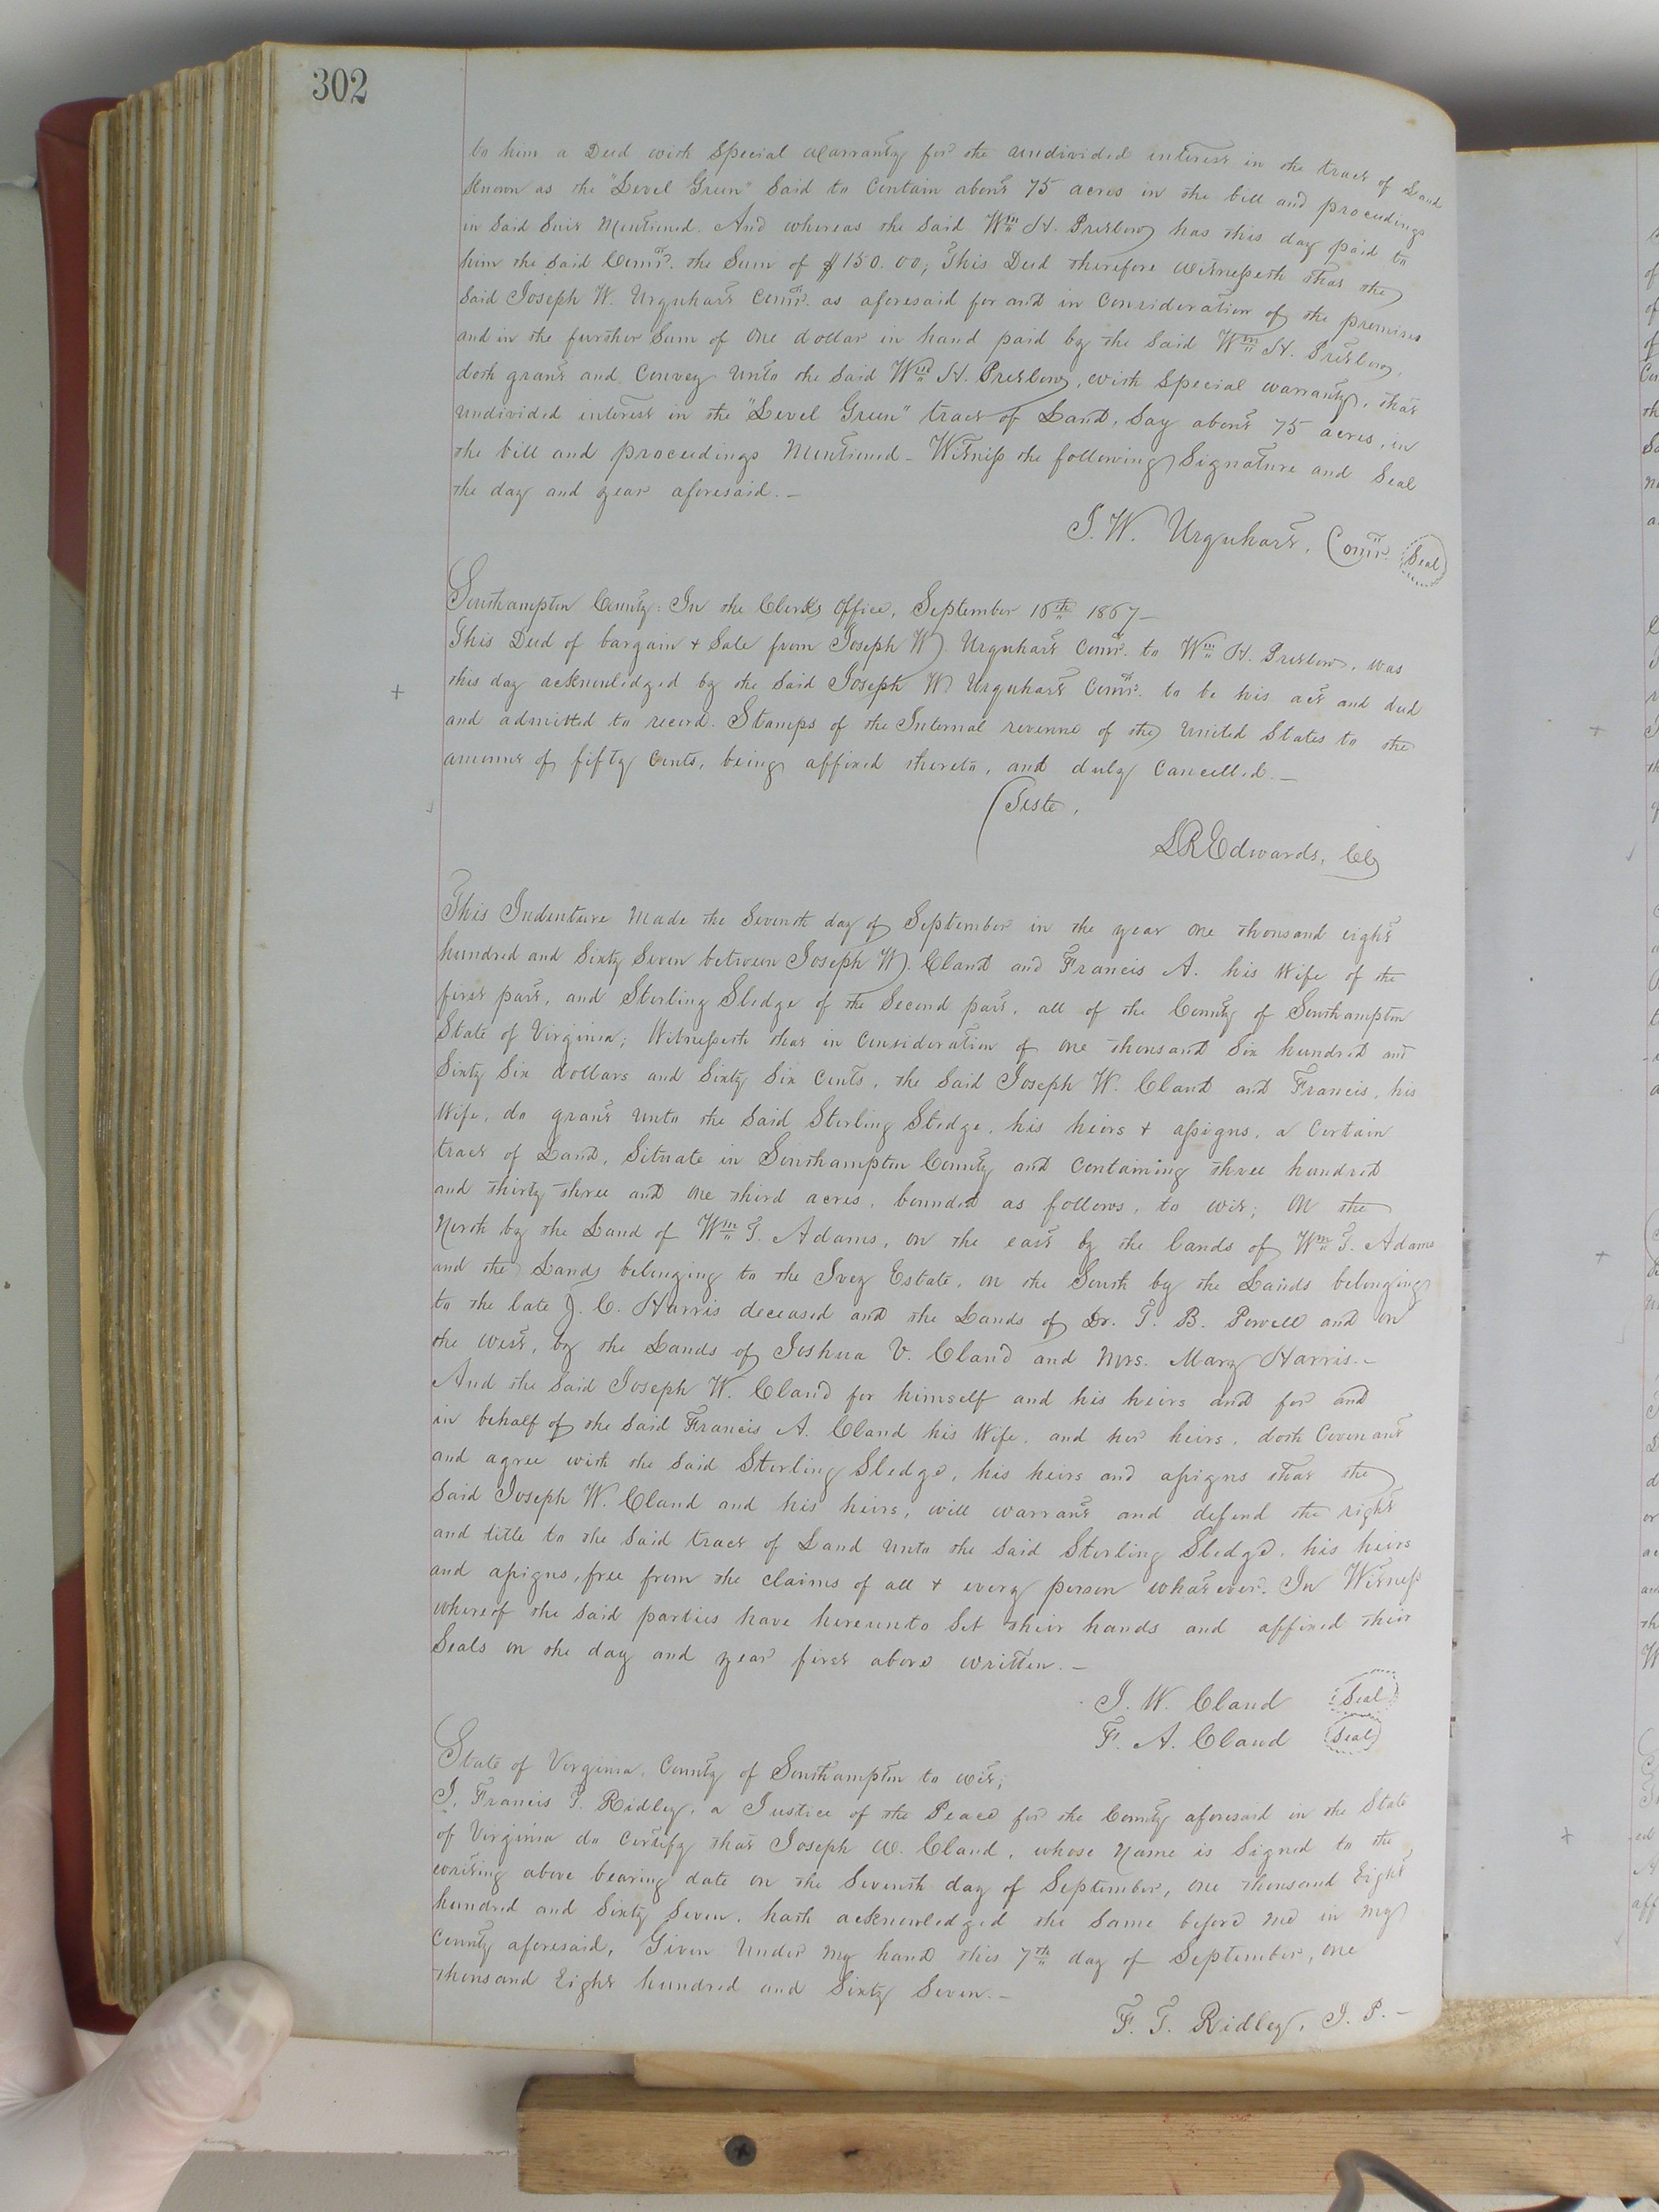 302
to him a Deed with Special Warranty for the undivided interest in the tract of Land
Known as the "Level Green" Said to Contain about 75 acres in the bill and proceedings
in Said Suit Mentioned. And whereas the Said Wm H. Pretlow has this day paid to
him the Said Comr. the Sum of $150.00; This Deed therefore Witnesseth that the
Said Joseph W. Urquhart Comr. as aforesaid for and in Consideration of the premises
and in the further Sum of One dollar in hand paid by the Said Wm H. Pretlow,
doth grant and Convey unto the Said Wm H. Pretlow, with Special warranty, that
undivided interest in the "Level Green" tract of Land, Say about 75 acres, in
the bill and proceedings Mentioned - Witness the following Signature and Seal
the day and year aforesaid. -
J. W. Urquhart, Comr. Seal
Southampton County: In the Clerks Office, September 16th 1867 -
This Deed of bargain + Sale from Joseph W. Urquhart Comr. to Wm H. Pretlow, was
this day acknowledged by the Said Joseph W Urquhart Comr. to be his act and deed
and admitted to record. Stamps of the Internal revenue of the United States to the
amount of fifty Cents, being affixed thereto, and duly Cancelled. -
Teste,
LREdwards, Clk
This Indenture Made the Seventh day of September in the year One thousand eight
hundred and Sixty Seven between Joseph W. Claud and Francis A. his Wife of the
first part, and Sterling Sledge of the Second part, all of the County of Southampton
State of Virginia; Witnesseth that in Consideration of One thousand Six hundred and
Sixty Six dollars and Sixty Six Cents, the Said Joseph W. Claud and Francis, his
Wife, do grant unto the Said Sterling Sledge, his heirs + assigns, a Certain
tract of Land, Situate in Southampton County and Containing three hundred
and thirty three and One third acres, bounded as follows, to wit; On the
North by the Land of Wm T. Adams, on the east by the lands of Wm T. Adams
and the Lands belonging to the Ivey Estate, on the South by the Lands belonging
to the late J. C. Harris deceased and the Lands of Dr. T. B. Powell and on
the West, by the Lands of Joshua V. Claud and Mrs. Mary Harris. -
And the Said Joseph W. Claud for himself and his heirs and for and
in behalf of the Said Francis A. Claud his Wife, and her heirs, doth Covenant
and agree with the Said Sterling Sledge, his heirs and assigns that the
Said Joseph W. Claud and his heirs, will warrant and defend the right
and title to the Said tract of Land unto the Said Sterling Sledge, his heirs
and assigns, free from the claims of all + every person whatever. In Witness
whereof the Said parties have hereunto Set their hands and affixed their
Seals on the day and year first above written. -
J. W. Claud Seal
F. A. Claud Seal
State of Virginia, County of Southampton to wit;
I, Francis T. Ridley, a Justice of the Peace for the County aforesaid in the State
of Virginia do Certify that Joseph W. Claud, whose Name is Signed to the
writing above bearing date on the Seventh day of September, One thousand Eight
hundred and Sixty Seven, hath acknowledged the Same before me in my
County aforesaid, Given Under my hand this 7th day of September, One
thousand Eight hundred and Sixty Seven. -
F. T. Ridley, J. P. -